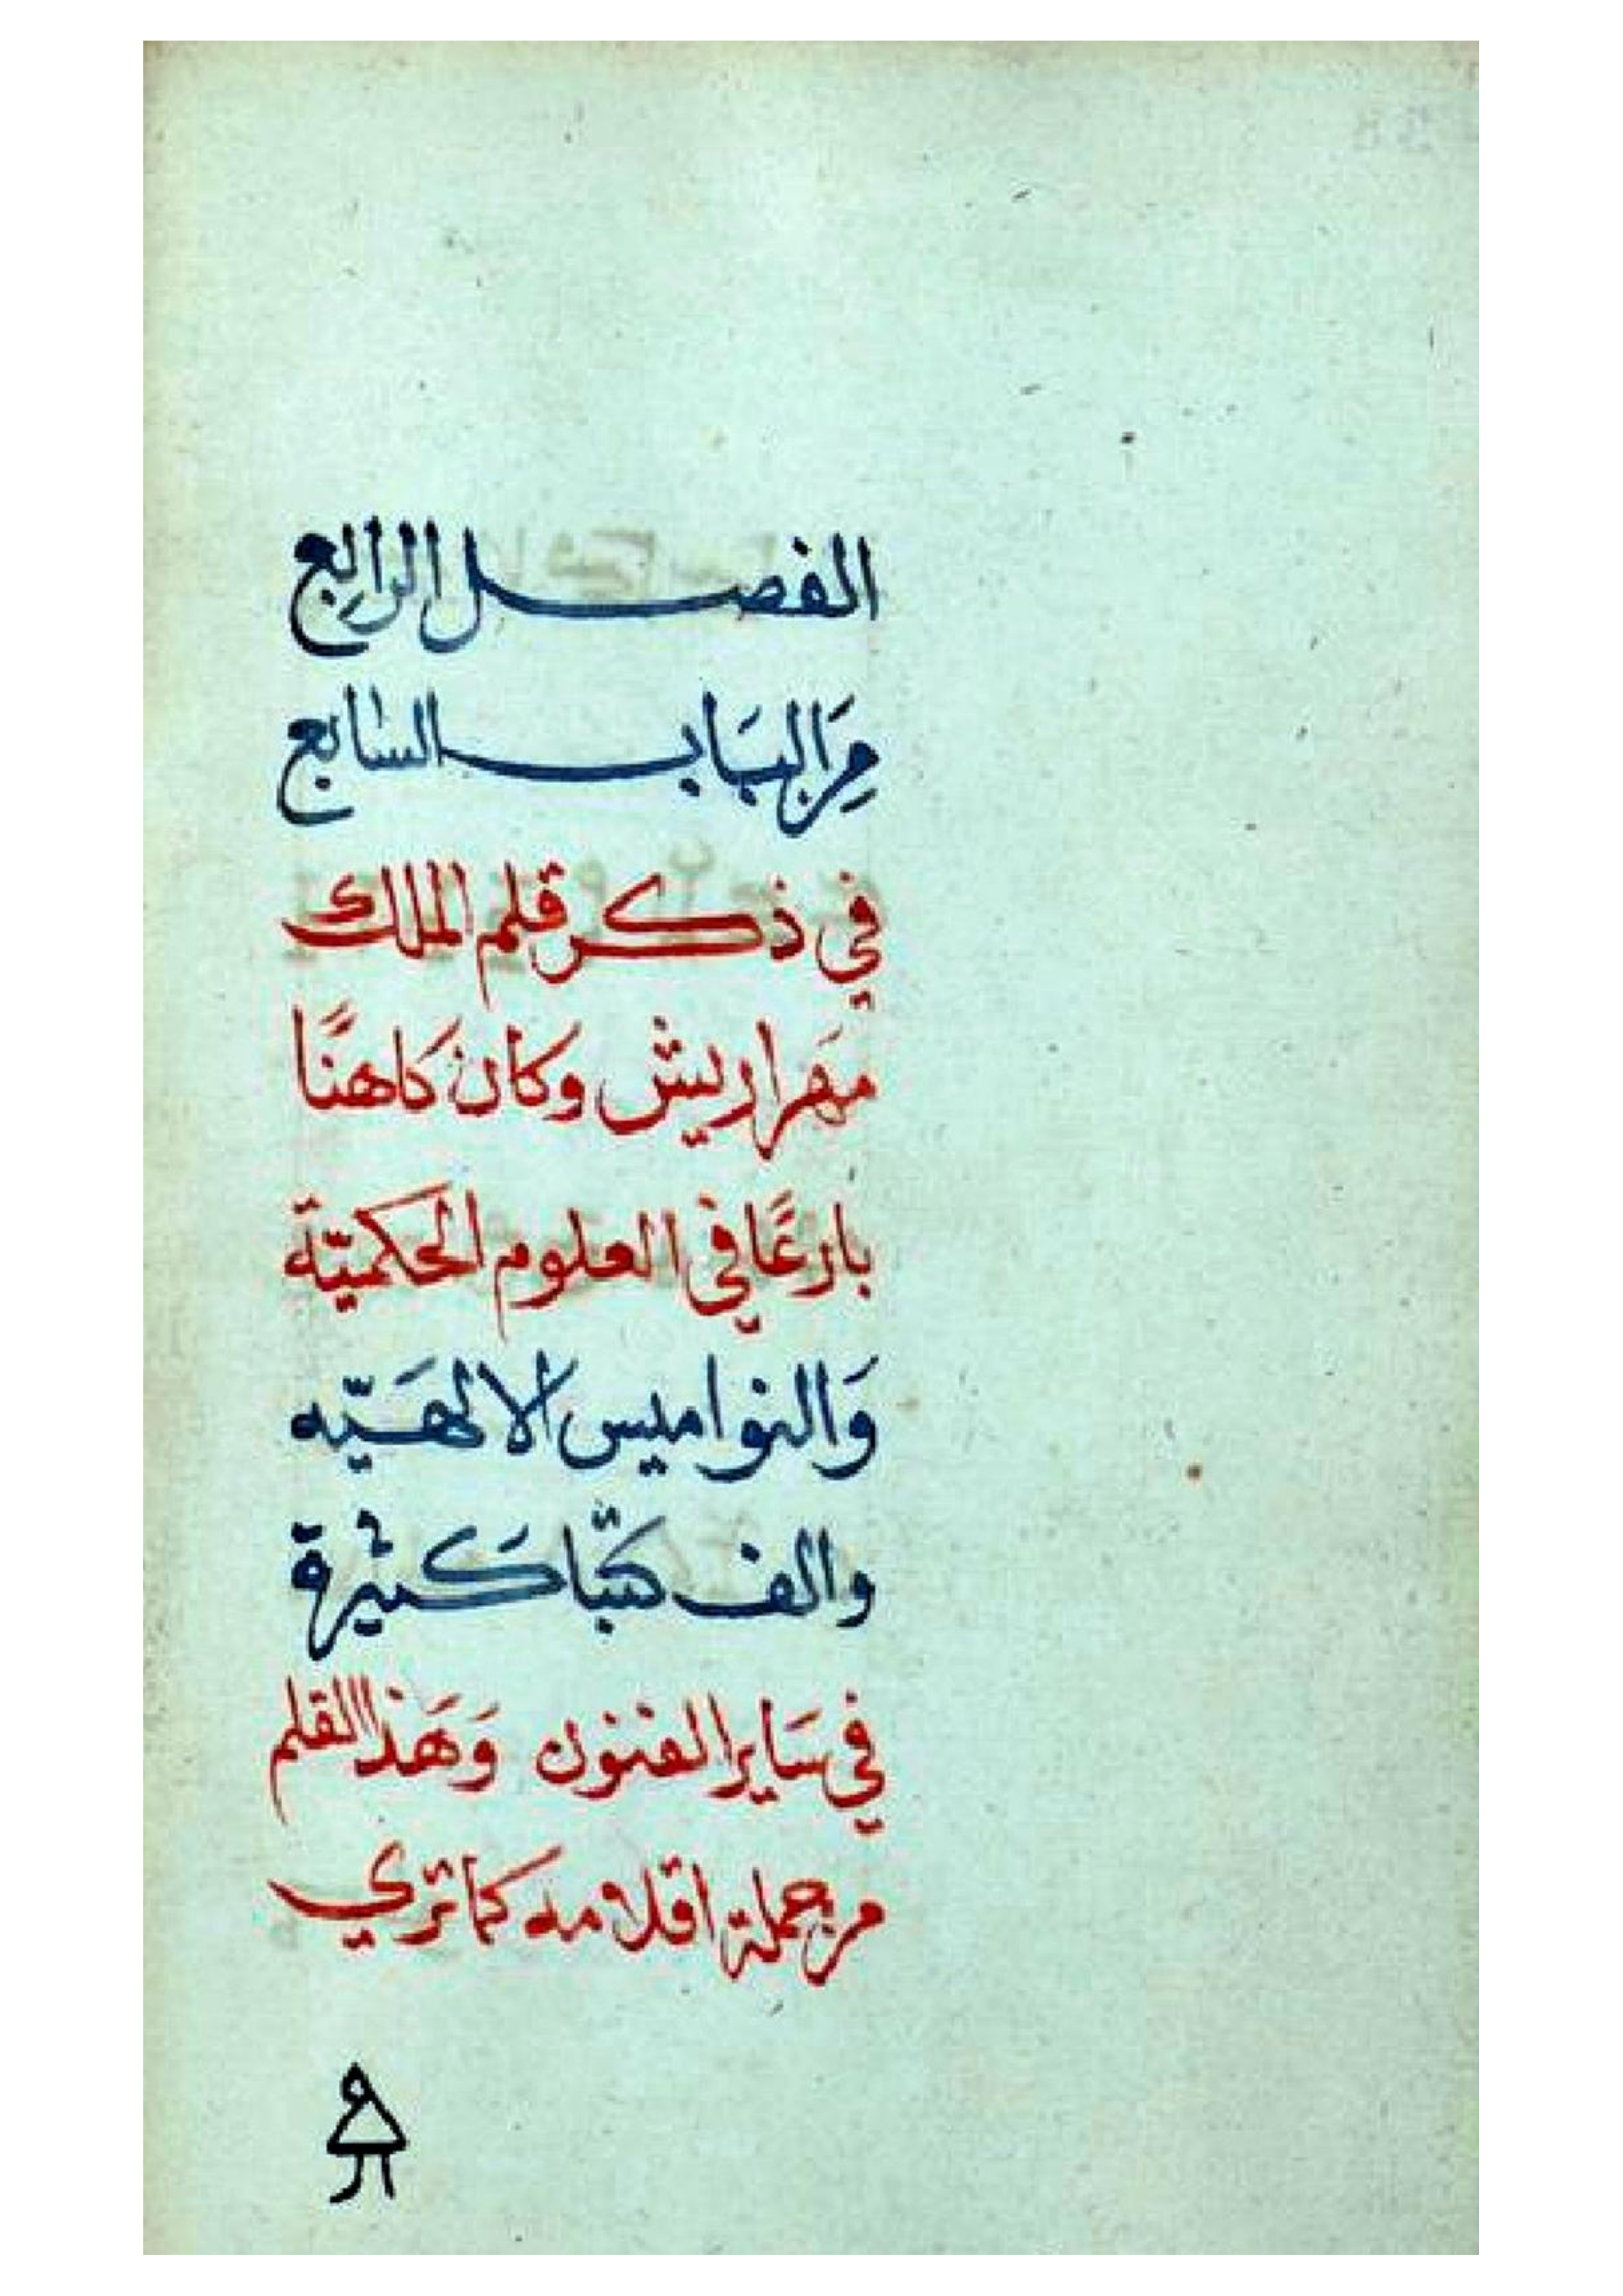 الفصل الرابع
مِنَ البَاب السابع
في ذكر قلم الملك
مَهراريش وكان كَاهنًا
بارعًا في العلوم الحكميّة
وَالنواميس الالهَيّه
والف كتبًا كَثيرة
في سَاير الفنون وَهَذا القلم
من جملة اقلامه كما تري